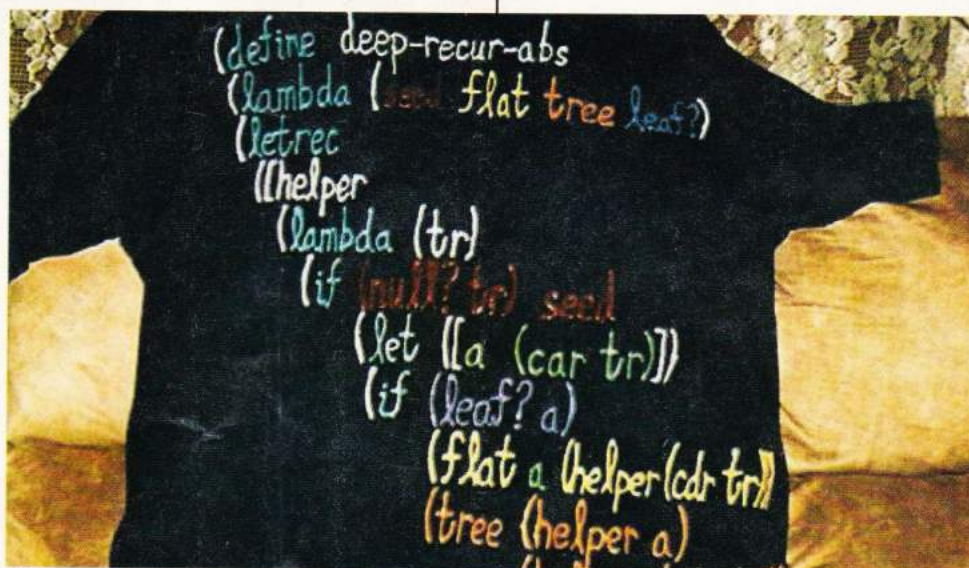 (define deep-recur-abs
(lambda (seed flat tree leaf?)
(letrec
([helper
(lambda (tr)
(if (null? tr) seed
(let ([a (car tr)])
(if (leaf? a)
(flat a (helper(cdr tr))
(tree (helper a)